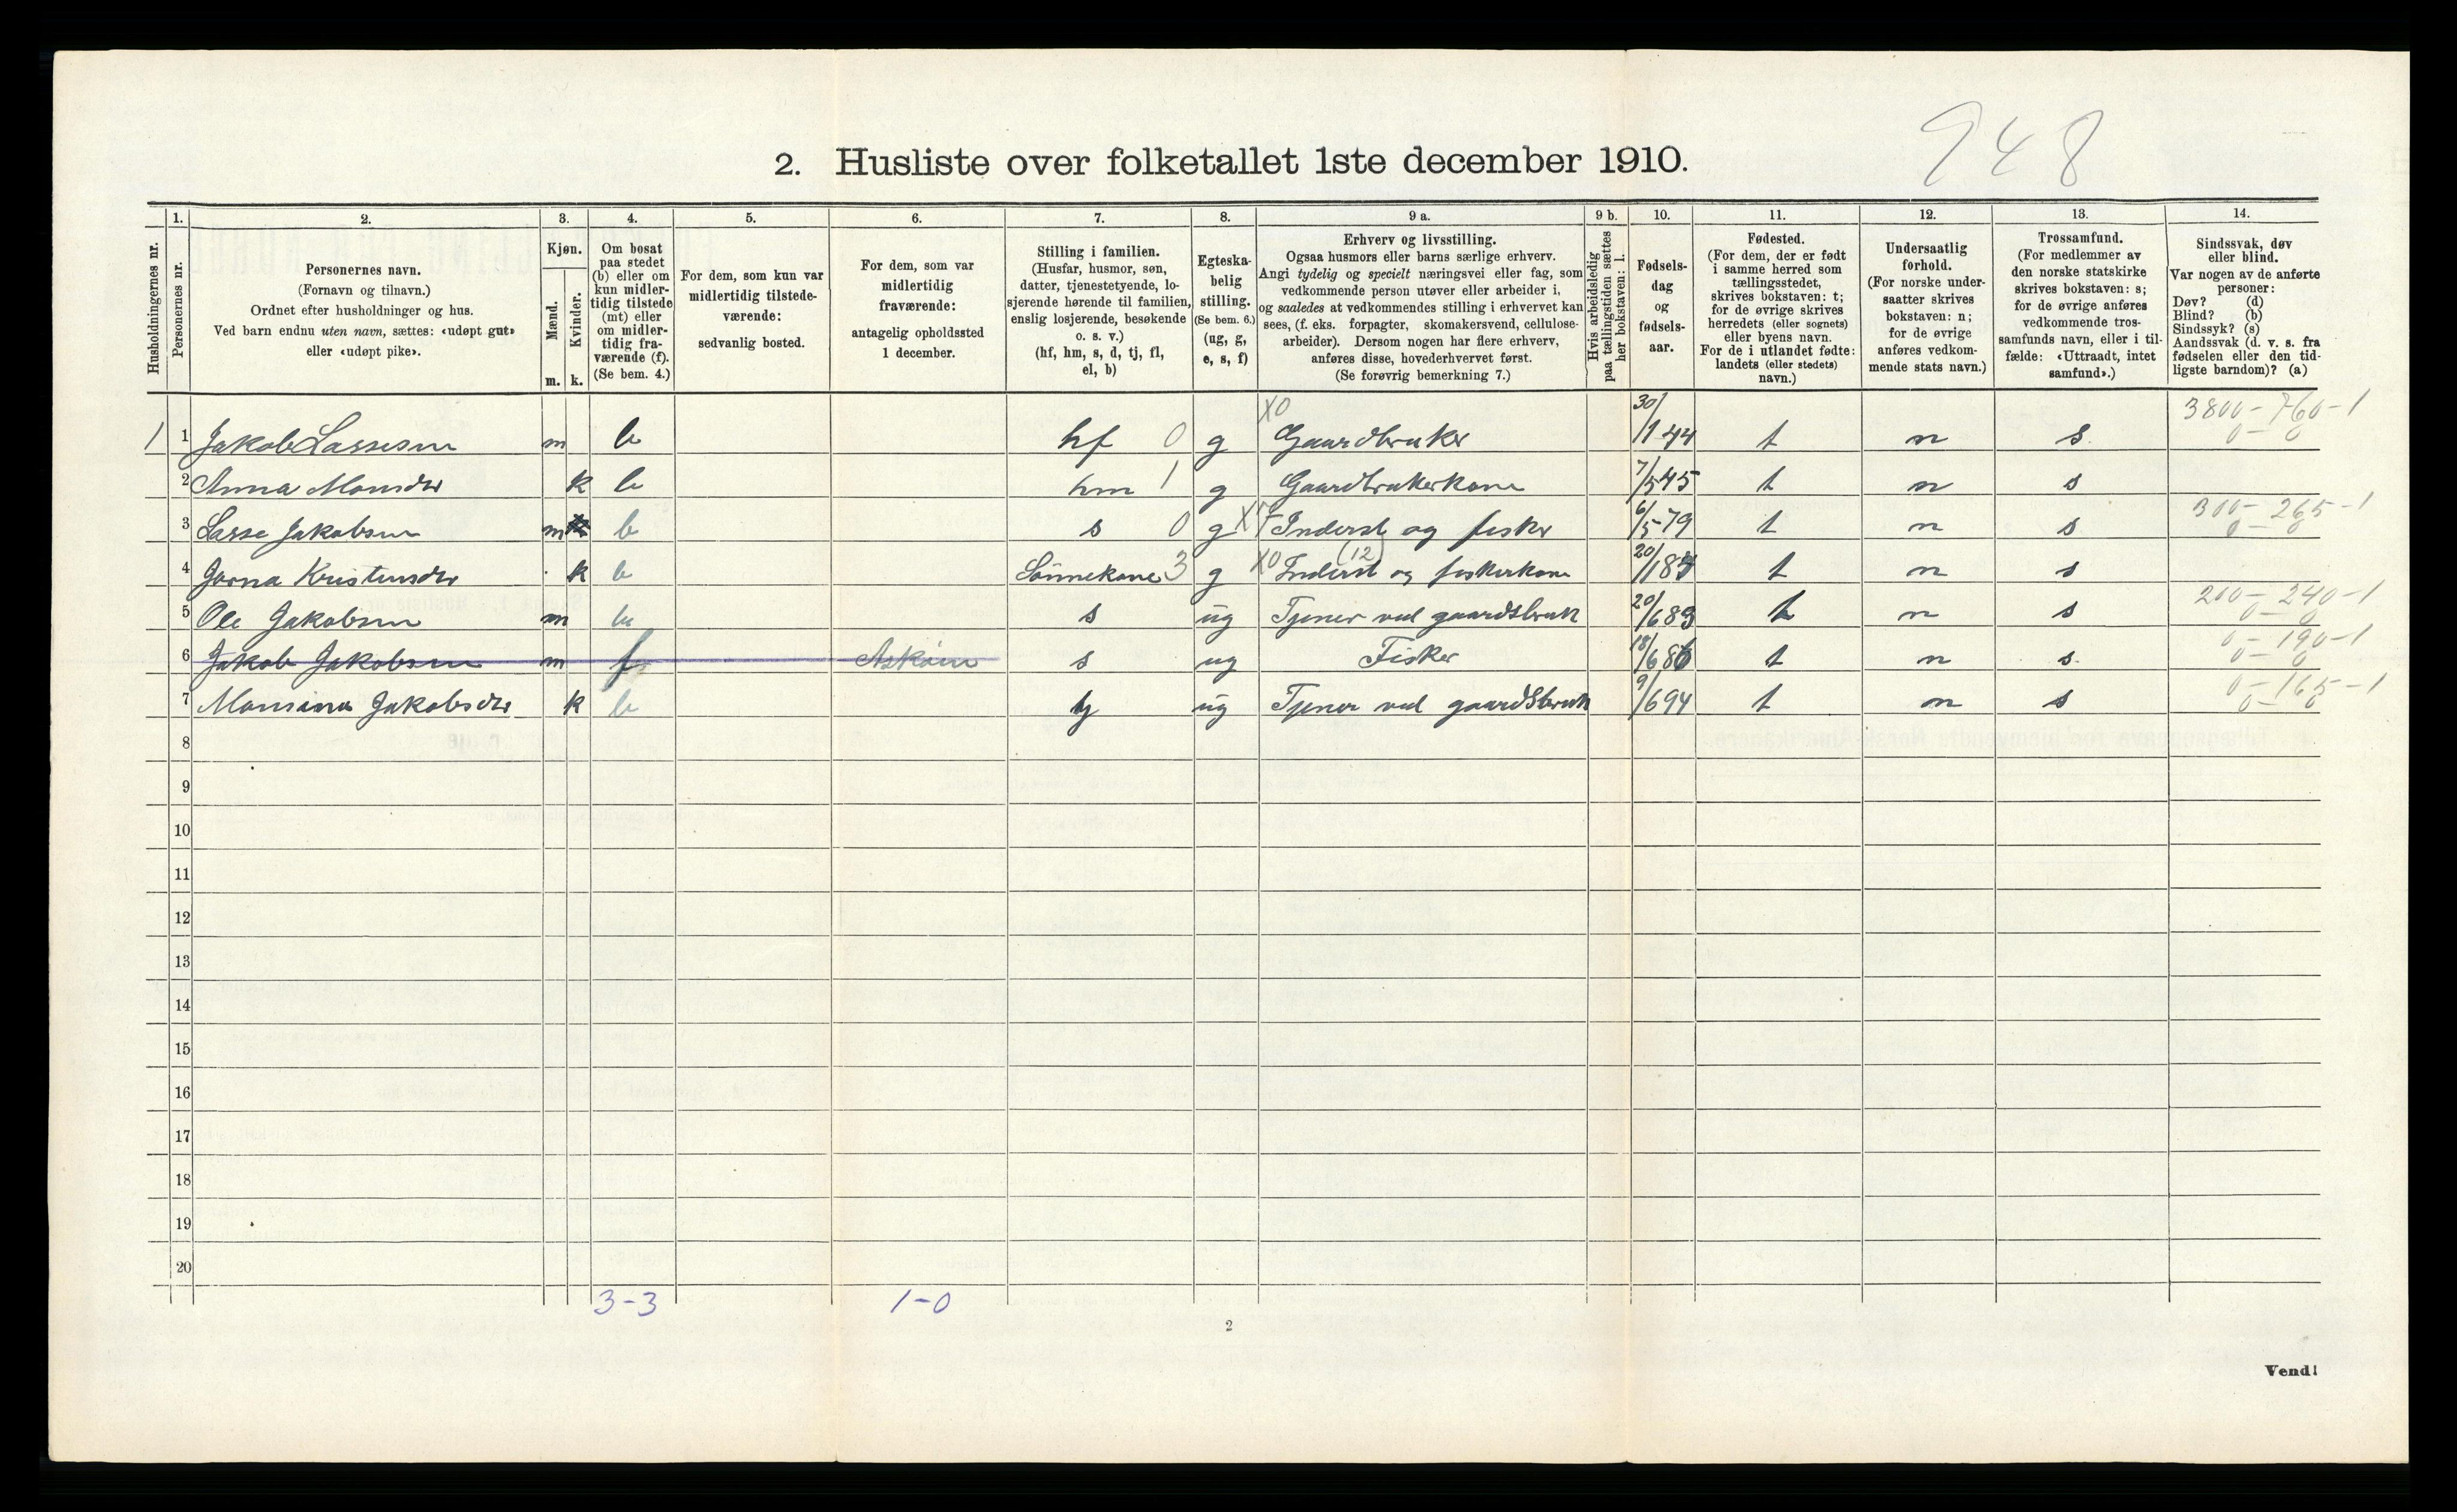 948
2. Husliste over folketallet 1ste december 1910.
Husholdningernes nr.
1.
Personernes nr.
2.
Personernes navn.
(Fornavn og tilnavn.)
Ordnet efter husholdninger og hus.
Ved barn endnu uten navn, sættes: «udøpt gut»
eller «udøpt pike».
3.
Kjøn.
Mænd.
Kvinder.
m. k.
4.
Om bosat
paa stedet
(b) eller om
kun midler-
tidig tilstede
(mt) eller
om midler-
tidig fra-
værende (f).
(Se bem. 4.)
5.
For dem, som kun var
midlertidig tilstede-
værende:
sedvanlig bosted.
6.
For dem, som var
midlertidig
fraværende:
antagelig opholdssted
1 december.
7.
Stilling i familien.
(Husfar, husmor, søn,
datter, tjenestetyende, lo-
sjerende hørende til familien,
enslig losjerende, besøkende
o. s. v.)
(hf, hm, s, d, tj, fl,
el, b)
8.
Egteska-
belig
stilling.
(Se bem. 6.)
(ug, g,
e, s, f)
9 a.
Erhverv og livsstilling.
Ogsaa husmors eller barns særlige erhverv.
Angi tydelig og specielt næringsvei eller fag, som
vedkommende person utøver eller arbeider i,
og saaledes at vedkommendes stilling i erhvervet kan
sees, (f. eks. forpagter, skomakersvend, cellulose-
arbeider). Dersom nogen har flere erhverv,
anføres disse, hovederhvervet først.
(Se forøvrig bemerkning 7.)
9 b.
Hvis arbeidsledig
paa tællingstiden sættes
her bokstaven: l.
10.
Fødsels-
dag
og
fødsels-
aar.
11.
Fødested.
(For dem, der er født
i samme herred som
tællingsstedet,
skrives bokstaven: t;
for de øvrige skrives
herredets (eller sognets)
eller byens navn.
For de i utlandet fødte:
landets (eller stedets)
navn.)
12.
Undersaatlig
forhold.
(For norske under-
saatter skrives
bokstaven: n;
for de øvrige
anføres vedkom-
mende stats navn.)
13.
Trossamfund.
(For medlemmer av
den norske statskirke
skrives bokstaven: s;
for de øvrige anføres
vedkommende tros-
samfunds navn, eller i til-
fælde: «Uttraadt, intet
samfund».)
14.
Sindssvak, døv
eller blind.
Var nogen av de anførte
personer:
Døv? (d)
Blind? (b)
Sindssyk? (s)
Aandssvak (d. v. s. fra
fødselen eller den tid-
ligste barndom)? (a)
1 1 Jakob Lassesen m b hf 0 g X0 Gaardbruker 30/1 44 t n s 3800-760-1 0-0
2 Anna Monsdtr k b hm 1 g Gaardbrukerkone 7/5 45 t n s
3 Lasse Jakobsen m b s 0 g Inderst og fisker 6/5 79 t n s 300-265-1 0-0
4 Kristensdtr k b Sönnekone 3 g X0 Inderst (12) og fiskerkone 20/1 t n s
5 Ole Jakobsen m b s ug Tjener ved gaardsbruk 20/6 83 t n s 200-240-1 0-0
6 Jakob Jakobsen m f Askøen s ug Fisker 18/6 86 t n s 0-190-1 0-0
7 Monsina Jakobsdtr k b tj ug Tjener ved gaardsbruk 9/6 94 t n s 0-165-1 0-0
8
9
10
11
12
13
14
15
16
17
18
19
20
3-3 1-0
2
Vend!